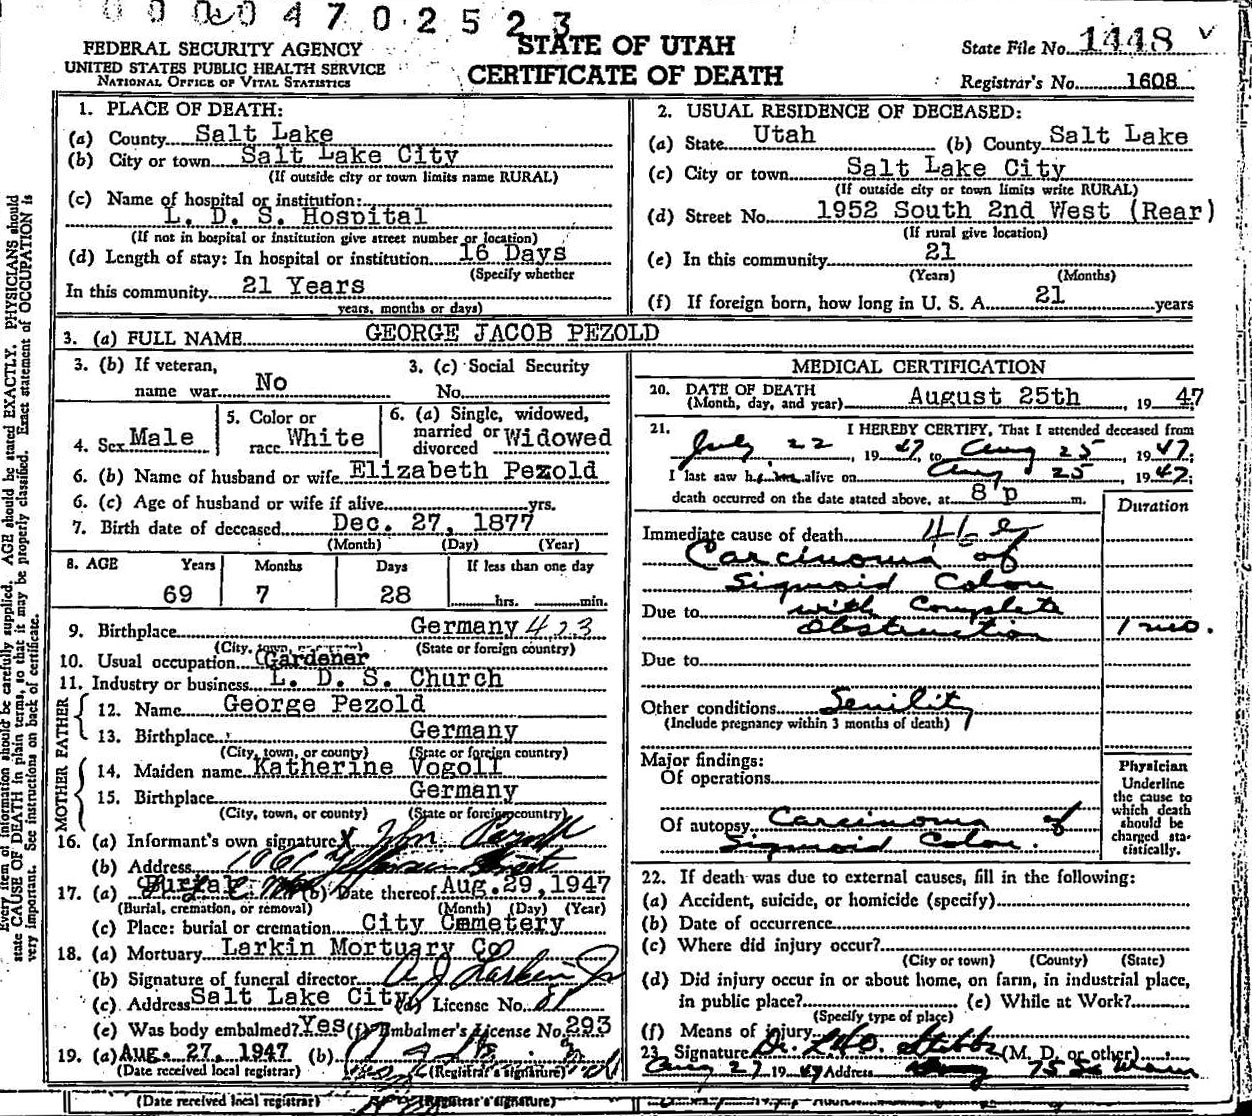 00004702523
FEDERAL SECURITY AGENCY
UNITED STATES PUBLIC HEALTH SERVICE
NATIONAL OFFICE OF VITAL STATISTICS
STATE OF UTAH
CERTIFICATE OF DEATH
State File No. 1448
Registrar's No. 1608
1. PLACE OF DEATH:
(a) County Salt Lake
(b) City or town Salt Lake City
(If outside city or town limits name RURAL)
(c) Name of hospital or institution:
L. D. S. Hospital
(If not in hospital or institution give street number or location)
(d) Length of stay: In hospital or institution 16 Days
(Specify whether
In this community 21 Years
years, months or days)
2. USUAL RESIDENCE OF DECEASED:
(a) State Utah (b) County Salt Lake
(c) City or town Salt Lake City
(If outside city or town limits write RURAL)
(d) Street No. 1952 South 2nd West (Rear)
(If rural give location)
(e) In this community 21
(Years) (Months)
(f) If foreign born, how long in U. S. A. 21 years
3. (a) FULL NAME GEORGE JACOB PEZOLD
3. (b) If veteran,
name war No
3. (c) Social Security
No.
4. Sex Male
5. Color or
race White
6. (a) Single, widowed,
married or
divorced Widowed
6. (b) Name of husband or wife Elizabeth Pezold
6. (c) Age of husband or wife if alive yrs.
7. Birth date of deceased Dec. 27, 1877
(Month) (Day) (Year)
8. AGE Years Months Days If less than one day
69 7 28 hrs. min.
9. Birthplace Germany 423
(City, town, or county) (State or foreign country)
10. Usual occupation Gardener
11. Industry or business L. D. S. Church
FATHER
12. Name George Pezold
13. Birthplace Germany
(City, town, or county) (State or foreign country)
MOTHER
14. Maiden name Katherine Vogoll
15. Birthplace Germany
(City, town, or county) (State or foreign country)
16. (a) Informant's own signature X John Pezold
(b) Address Jefferson Street
17. (a) Burial (b) Date thereof Aug. 29, 1947
(Burial, cremation, or removal) (Month) (Day) (Year)
(c) Place: burial or cremation City Cemetery
18. (a) Mortuary Larkin Mortuary Co
(b) Signature of funeral director A J Larkin Jr
(c) Address Salt Lake City (d) License No.
(e) Was body embalmed? Yes (f) Embalmer's License No. 293
19. (a) Aug. 27, 1947 (b)
(Date received local registrar) (Registrar's signature)
MEDICAL CERTIFICATION
20. DATE OF DEATH
(Month, day, and year) August 25th, 19 47
21. I HEREBY CERTIFY, That I attended deceased from
July 22, 19 47, to Aug 25, 19 47;
I last saw him alive on Aug 25, 19 47;
death occurred on the date stated above, at 8 p m.
Duration
Immediate cause of death 46 e
Carcinoma of
Sigmoid Colon
Due to with Complete
obstruction 1 mo.
Due to
Other conditions Senility
(Include pregnancy within 3 months of death)
Major findings:
Of operations
Of autopsy Carcinoma of
Sigmoid Colon.
Physician
Underline
the cause to
which death
should be
charged sta-
tistically.
22. If death was due to external causes, fill in the following:
(a) Accident, suicide, or homicide (specify)
(b) Date of occurrence
(c) Where did injury occur?
(City or town) (County) (State)
(d) Did injury occur in or about home, on farm, in industrial place,
in public place? (e) While at Work?
(Specify type of place)
(f) Means of injury
23. Signature Dr. Stubbs (M. D. or other)
Aug 27 19 47 Address 75 So
(Date received local registrar) (Registrar's signature)
Every item of information should be carefully supplied. AGE should be stated EXACTLY. PHYSICIANS should
state CAUSE OF DEATH in plain terms, so that it may be properly classified. Exact statement of OCCUPATION is
very important. See instructions on back of certificate.